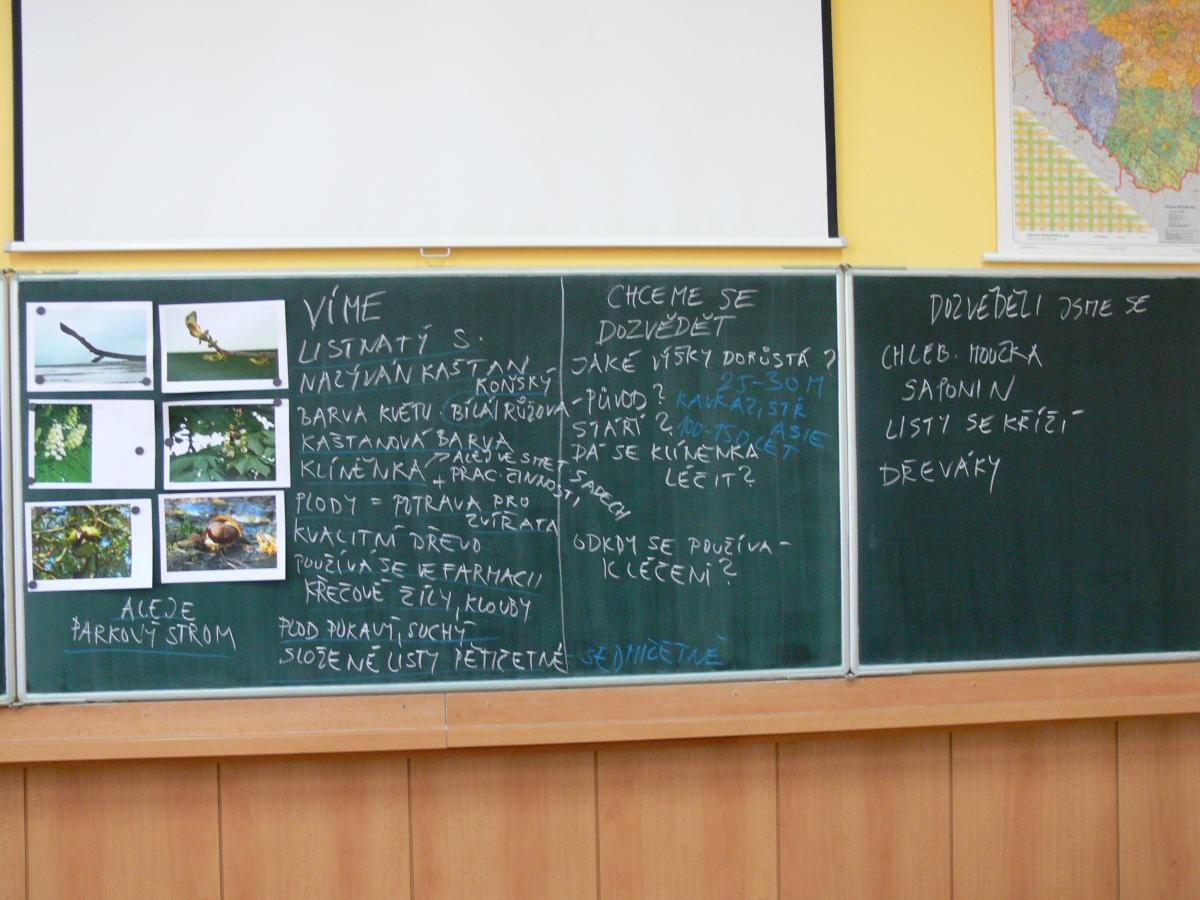 VÍME
LISTNATÝ S.
NAZÝVÁN KAŠTAN
KOŇSKÝ
BARVA KVĚTU BÍLÁ/RŮŽOVÁ
KAŠTANOVÁ BARVA
KLÍNĚNKA
ALEJ VE SMET. SADECH
+ PRAC. ČINNOSTI
PLODY = POTRAVA PRO
ZVÍŘATA
KVALITNÍ DŘEVO
POUŽÍVÁ SE VE FARMACII
KŘEČOVÉ ŽÍLY, KLOUBY
PLOD PUKAVÝ, SUCHÝ
SLOŽENÉ LISTY PĚTIČETNÉ - SEDMIČETNÉ
ALEJE
PARKOVÝ STROM
CHCEME SE
DOZVĚDĚT
JAKÉ VÝŠKY DORŮSTÁ?
25-30 M
- PŮVOD? KAVKAZ, STŘ
ASIE
STÁŘÍ? 100-150 LET
DÁ SE KLÍNĚNKA
LÉČIT?
ODKDY SE POUŽÍVÁ -
K LÉČENÍ?
DOZVĚDĚLI JSME SE
CHLEB. MOUČKA
SAPONIN
LISTY SE KŘÍŽÍ
DŘEVÁKY